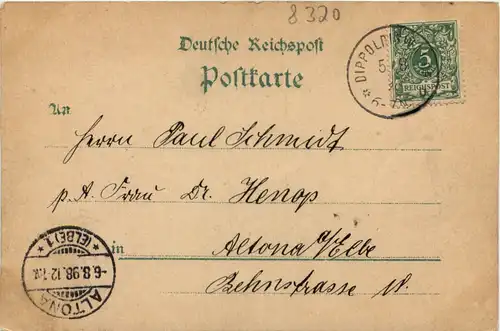 8320
Deutsche Reichspost
Postkarte
5
REICHSPOST
An
Herrn Paul Schmidt
p. A. Frau Dr. Henop
in Altona a/Elbe
Behnstrasse
ALTONA
-6.8.98.12-1
* (ELBE) 1 *